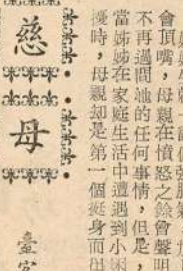 會頂嘴，母親在憤怒之餘會聲明
不再過問她的任何事情，但是，
當姊姊在家庭生活中遭遇到小困
擾時，母親却是第一個挺身而出
慈母